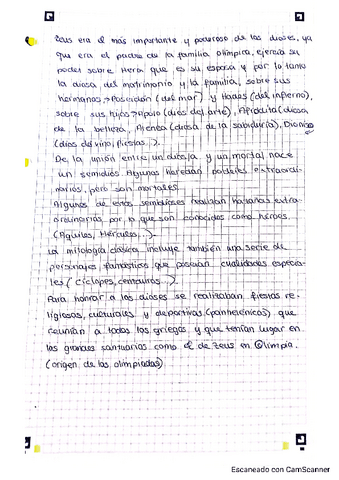 Zeus era el más importante y poderoso de los dioses, ya
que era el padre de la familia olímpica, ejercía su
poder sobre Hera que es su esposa y por lo tanto
la diosa del matrimonio y la familia, sobre sus
hermanos → Poseidón (del mar) y Hades (del infierno),
sobre sus hijos → Apolo (dios del arte), Afrodita (diosa
de la belleza), Atenea (diosa de la sabiduría), Dioniso
(dios del vino, fiestas...).
De la unión entre un dios/a y un mortal nace
un semidiós. Algunos heredan poderes extraordi-
narios, pero son mortales.
Algunos de estos semidioses realizan hazañas extra-
ordinarias por lo que son conocidos como héroes.
(Aquiles, Hércules...).
La mitología clásica incluye también una serie de
personajes fantásticos que poseían cualidades especia-
les (cíclopes, centauros...).
Para honrar a los dioses se realizaban fiestas re-
ligiosas, culturales y deportivas (panhelénicas) que
reunían a todos los griegos, y que tenían lugar en
los grandes santuarios como el de Zeus en Olimpia.
(origen de las olimpiadas)
Escaneado con CamScanner